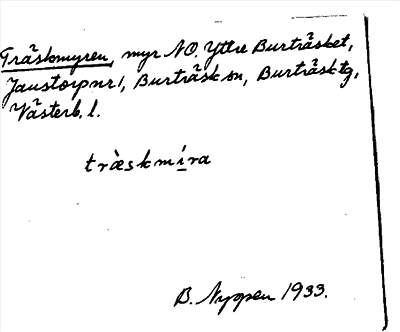 Träskmyren, myr NO. Yttre Burträsket,
Jaustorp nr 1, Burträsk sn, Burträsk tg,
Västerb. l.
træskmíra
B. Nyppen 1933.